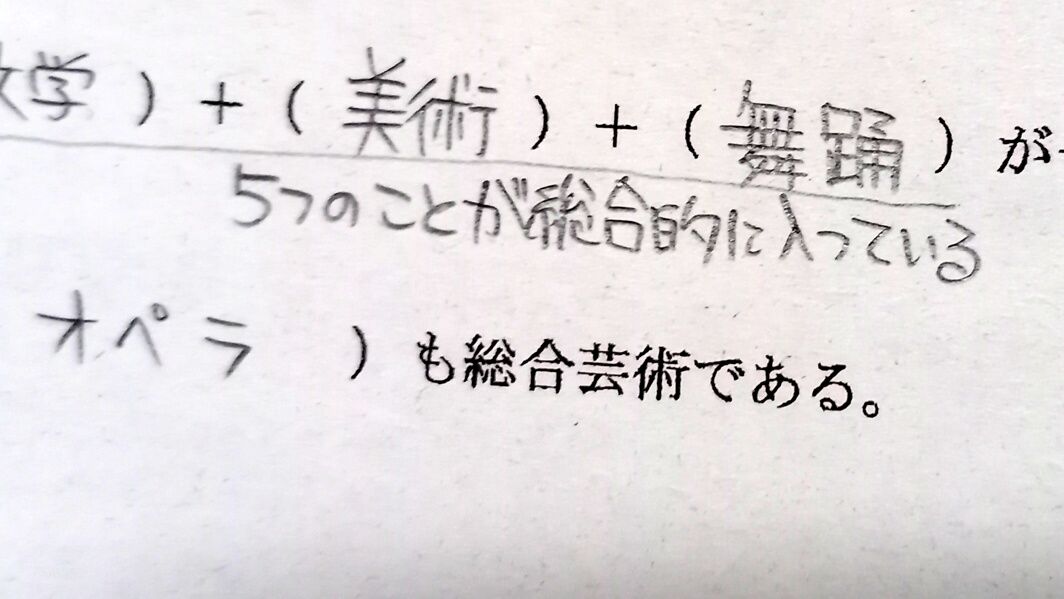 文学）＋（美術）＋（舞踊）が
5つのことが総合的に入っている
オペラ　）も総合芸術である。